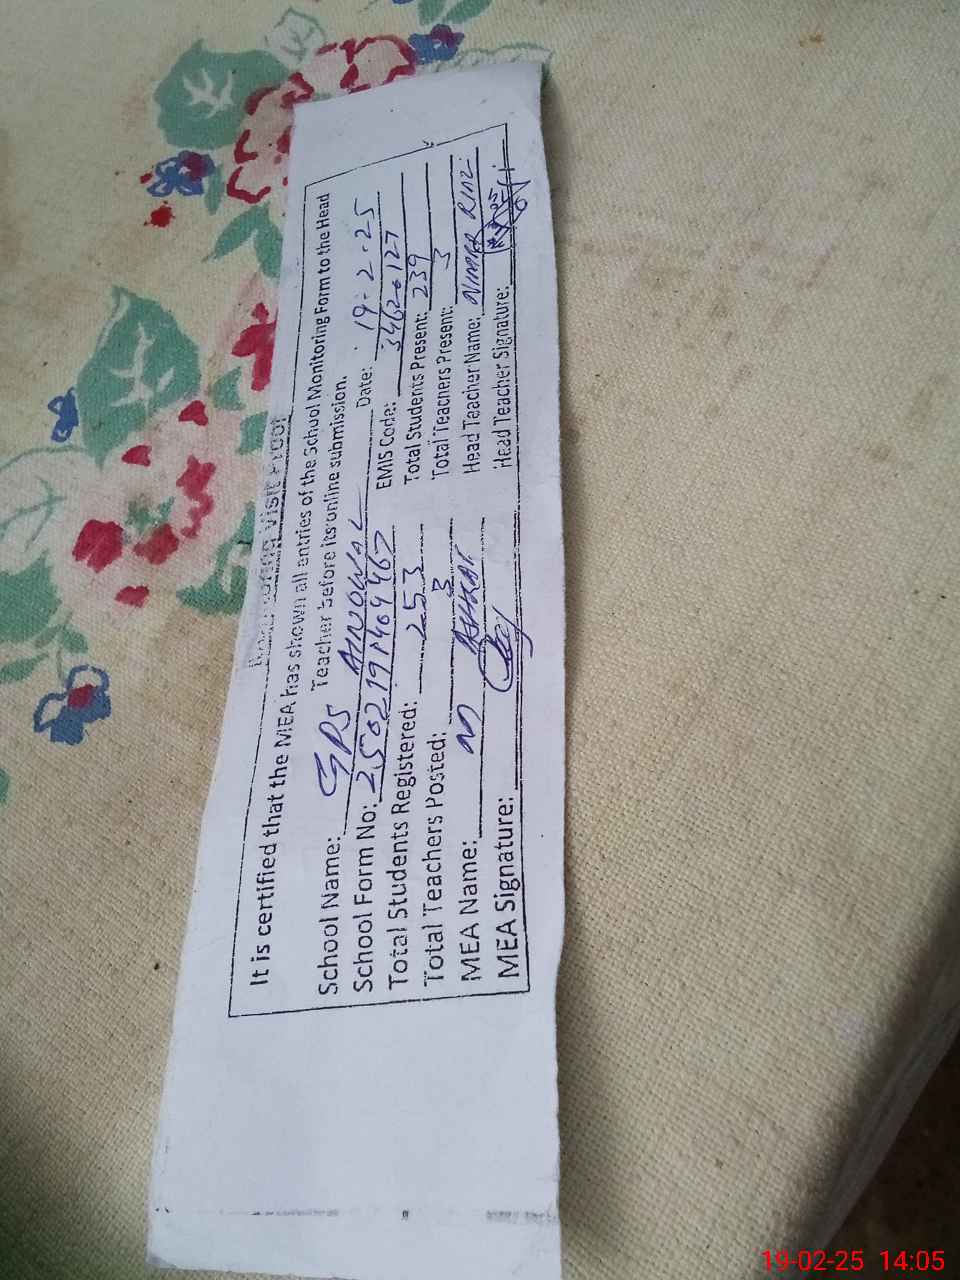 Monitoring Visit Proof
It is certified that the MEA has shown all entries of the School Monitoring Form to the Head
Teacher before its online submission.
School Name: GPS AINOWAL Date: 19-2-25
School Form No: EMIS Code: 34620127
Total Students Registered: 253 Total Students Present: 239
Total Teachers Posted: 3 Total Teachers Present: 3
MEA Name: M ASHRAF Head Teacher Name:
MEA Signature: Head Teacher Signature:
19-02-25 14:05